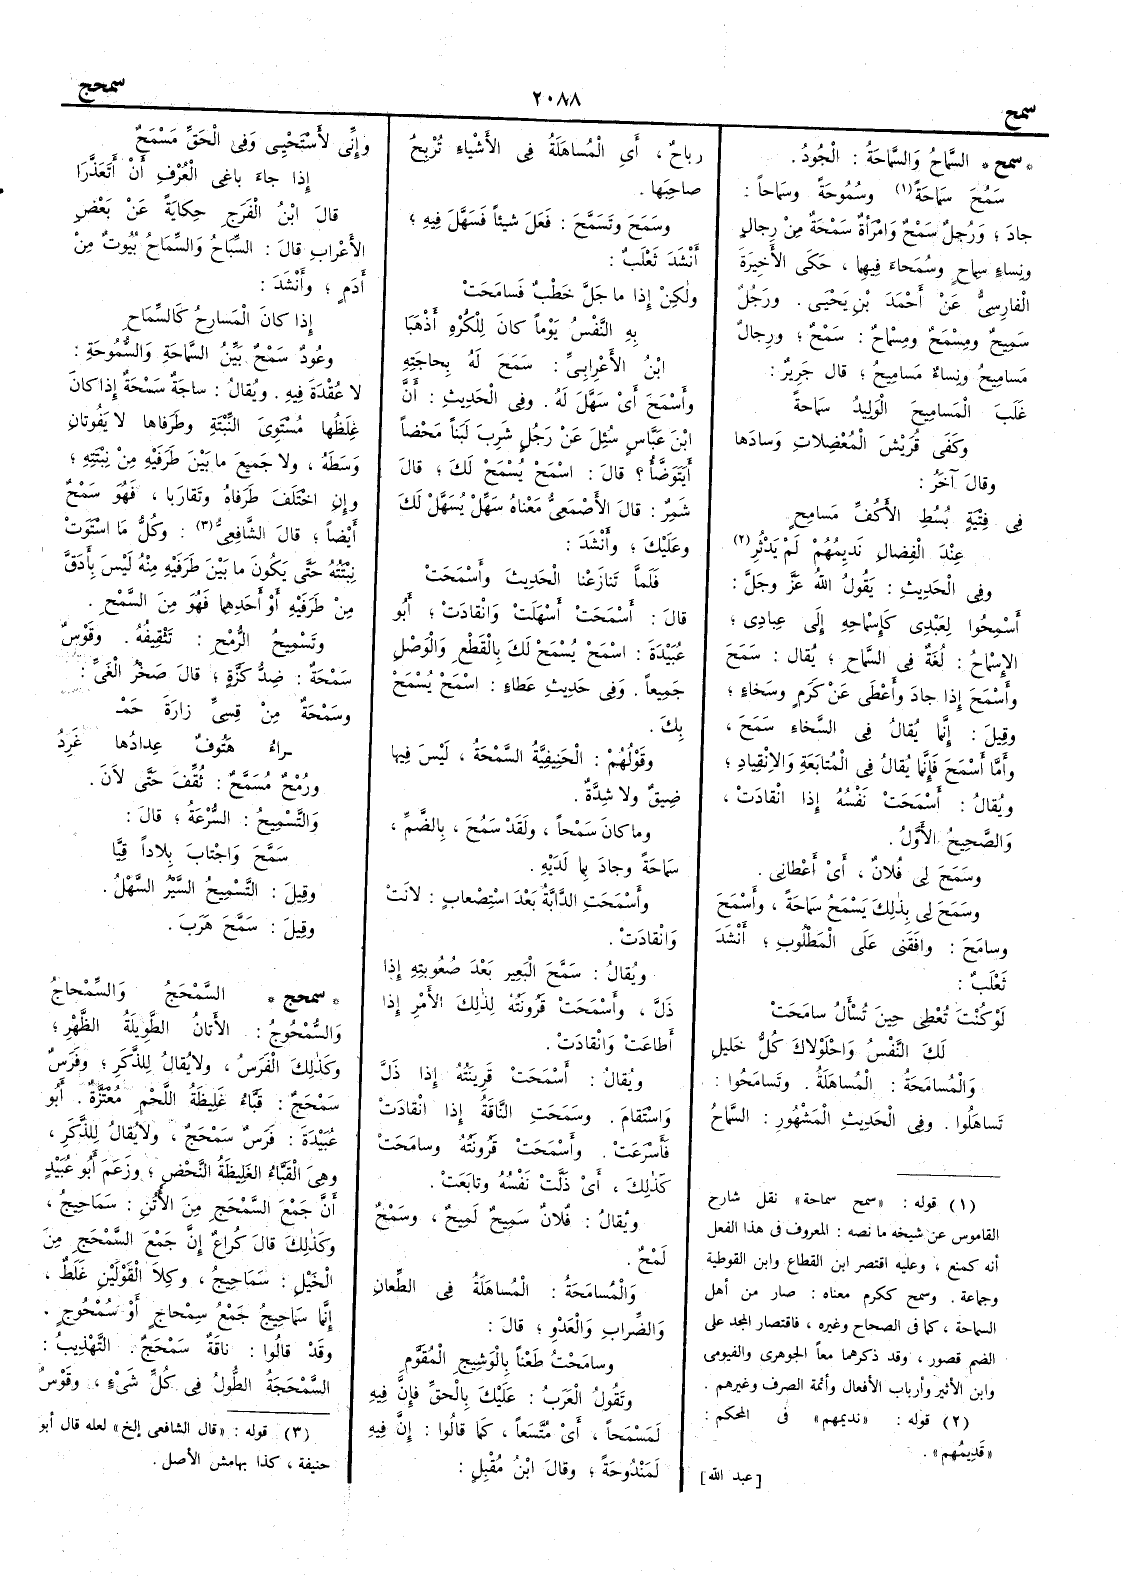 سمح
٢٠٨٨
سمحج
* سمح * السَّماحُ وَالسَّماحَةُ : الْجُودُ .
سَمُحَ سَماحَةً (١) وسُمُوحَةً وسَماحاً :
جادَ ؛ وَرَجُلٌ سَمْحٌ وَامْرَأَةٌ سَمْحَةٌ مِنْ رِجالٍ
ونِساءٍ سِماحٍ وسُمَحاءَ فِيهِما ، حَكَى الأَخِيرَةَ
الْفارِسِىُّ عَنْ أَحْمَدَ بْنِ يَحْيَى . ورَجُلٌ
سَمِيحٌ ومِسْمَحٌ ومِسْماحٌ : سَمْحٌ ؛ ورِجالٌ
مَسامِيحُ ونِساءٌ مَسامِيحُ ؛ قالَ جَرِيرٌ :
غَلَبَ الْمَسامِيحَ الْوَلِيدُ سَماحَةً
وكَفَى قُرَيْشَ الْمُعْضِلاتِ وَسادَها
وقالَ آخَرُ :
فِى فِتْيَةٍ بُسُطِ الأَكُفِّ مَسامِحٍ
عِنْدَ الْفِضالِ نَدِيمُهُمْ لَمْ يَدْثُرِ (٢)
وفِى الْحَدِيثِ : يَقُولُ اللهُ عَزَّ وجَلَّ :
أَسْمِحُوا لِعَبْدِى كَإِسْماحِهِ إِلَى عِبادِى ؛
الإِسْماحُ : لُغَةٌ فِى السَّماحِ ؛ يُقالُ : سَمَحَ
وأَسْمَحَ إِذا جادَ وأَعْطَى عَنْ كَرَمٍ وسَخاءٍ ؛
وقِيلَ : إِنَّما يُقالُ فِى السَّخاءِ سَمَحَ ،
وأَمَّا أَسْمَحَ فَإِنَّما يُقالُ فِى الْمُتابَعَةِ وَالاِنْقِيادِ ؛
ويُقالُ : أَسْمَحَتْ نَفْسُهُ إِذا انْقادَتْ ،
وَالصَّحِيحُ الأَوَّلُ .
وسَمَحَ لِى فُلانٌ ، أَىْ أَعْطانِى .
وسَمَحَ لِى بِذٰلِكَ يَسْمَحُ سَماحَةً ، وأَسْمَحَ
وسامَحَ : وافَقَنِى عَلَى الْمَطْلُوبِ ؛ أَنْشَدَ
ثَعْلَبٌ :
لَوْ كُنْتَ تُعْطِى حِينَ تُسْأَلُ سامَحَتْ
لَكَ النَّفْسُ وَاحْلَوْلاكَ كُلُّ خَلِيلِ
وَالْمُسامَحَةُ : الْمُساهَلَةُ وتَسامَحُوا :
تَساهَلُوا . وفِى الْحَدِيثِ الْمَشْهُورِ : السَّماحُ
(١) قوله : «سمح سماحة» نقل شارح
القاموس عن شيخه ما نصه : المعروف فى هذا الفعل
أنه كمنع ، وعليه اقتصر ابن القطاع وابن القوطية
وجماعة . وسمح ككرم معناه : صار من أهل
السماحة ، كما فى الصحاح وغيره ، فاقتصار المجد على
الضم قصور ، وقد ذكرهما معاً الجوهرى والفيومى
وابن الأثير وأرباب الأفعال وأئمة الصرف وغيرهم .
(٢) قوله : «نديمهم» فى المحكم :
«قَدِيمُهم» .
[عبد الله]
رباحٌ ، أَىِ الْمُساهَلَةُ فِى الأَشْياءِ تُرْبِحُ
صاحِبَها .
وَسَمَحَ وتَسَمَّحَ : فَعَلَ شيئاً فَسَهَّلَ فِيهِ ؛
أَنْشَدَ ثَعْلَبٌ :
ولٰكِنْ إِذا ما جَلَّ خَطْبٌ فَسامَحَتْ
بِهِ النَّفْسُ يَوْماً كانَ لِلْكُرْهِ أَذْهَبَا
ابْنُ الأَعْرابِىِّ : سَمَحَ لَهُ بِحاجَتِهِ
وأَسْمَحَ أَىْ سَهَّلَ لَهُ . وفِى الْحَدِيثِ : أَنَّ
ابْنَ عَبَّاسٍ سُئِلَ عَنْ رَجُلٍ شَرِبَ لَبَناً مَحْضاً
أَيَتَوَضَّأُ ؟ قالَ : اسْمَحْ يُسْمَحْ لَكَ ؛ قالَ
شَمِرٌ : قالَ الأَصْمَعِىُّ مَعْناهُ سَهِّلْ يُسَهَّلْ لَكَ
وعَلَيْكَ ؛ وأَنْشَدَ :
فَلَمَّا تَنازَعْنا الْحَدِيثَ وأَسْمَحَتْ
قالَ : أَسْمَحَتْ أَسْهَلَتْ وَانْقادَتْ ؛ أَبُو
عُبَيْدَةَ : اسْمَحْ يُسْمَحْ لَكَ بِالْقَطْعِ والْوَصْلِ
جَمِيعاً . وَفِى حَدِيثِ عَطاءٍ : اسْمَحْ يُسْمَحْ
بِكَ .
وقَوْلُهُمْ : الْحَنِيفِيَّةُ السَّمْحَةُ ، لَيْسَ فِيها
ضِيقٌ ولا شِدَّةٌ .
وما كانَ سَمْحاً ، ولَقَدْ سَمُحَ ، بِالضَّمِّ ،
سَماحَةً وجادَ بِما لَدَيْهِ .
وأَسْمَحَتِ الدَّابَّةُ بَعْدَ اسْتِصْعابٍ : لانَتْ
وَانْقادَتْ .
ويُقالُ : سَمَّحَ الْبَعِير بَعْدَ صُعُوبتِهِ إِذا
ذَلَّ ، وأَسْمَحَتْ قَرُونَتُهُ لِذٰلِكَ الأَمْرِ إِذا
أَطاعَتْ وَانْقادَتْ .
ويُقالُ : أَسْمَحَتْ قَرِينَتُهُ إِذا ذَلَّ
وَاسْتَقامَ . وسَمَحَتِ النَّاقَةُ إِذا انْقادَتْ
فَأَسْرَعَتْ . وأَسْمَحَتْ قَرُونَتُهُ وسامَحَتْ
كَذٰلِكَ ، أَىْ ذَلَّتْ نَفْسُهُ وتابَعَتْ .
ويُقالُ : فُلانٌ سَمِيحٌ لَمِيحٌ ، وسَمْحٌ
لَمْحٌ .
وَالْمُسامَحَةُ : الْمُساهَلَةُ فِى الطِّعانِ
وَالضِّرابِ وَالْعَدْوِ ؛ قالَ :
وسامَحْتُ طَعْناً بِالْوَشِيجِ الْمُقَوَّمِ
وتَقُولُ الْعَرَبُ : عَلَيْكَ بِالْحَقِّ فَإِنَّ فِيهِ
لَمَسْمَحاً ، أَىْ مُتَّسَعاً ، كَما قالُوا : إِنَّ فِيهِ
لَمَنْدُوحَةً ؛ وقالَ ابْنُ مُقْبِلٍ :
وإِنِّى لأَسْتَحْيِى وَفِى الْحَقِّ مَسْمَحٌ
إِذا جاءَ باغِى الْعُرْفِ أَنْ أَتَعَذَّرَا
قالَ ابْنُ الْفَرَجِ حِكايَةً عَنْ بَعْضِ
الأَعْرابِ قالَ : السِّباحُ وَالسِّماحُ بُيُوتٌ مِنْ
أَدَمٍ ؛ وأَنْشَدَ :
إِذا كانَ الْمَسارِحُ كَالسِّماحِ
وعُودٌ سَمْحٌ بَيِّنُ السَّماحَةِ وَالسُّمُوحَةِ :
لا عُقْدَةَ فِيهِ . ويُقالُ : ساجَةٌ سَمْحَةٌ إِذا كانَ
غِلَظُها مُسْتَوِىَ النِّبْتَةِ وطَرَفاها لا يَفُوتانِ
وَسَطَهُ ، ولا جَمِيعَ ما بَيْنَ طَرَفَيْهِ مِنْ نِبْتَتِهِ ؛
وإِنِ اخْتَلَفَ طَرَفاهُ وتَقارَبا ، فَهُوَ سَمْحٌ
أَيْضاً ؛ قالَ الشَّافِعِىُّ (٣) : وكُلُّ ما اسْتَوَتْ
نِبْتَتُهُ حَتَّى يَكُونَ ما بَيْنَ طَرَفَيْهِ مِنْهُ لَيْسَ بِأَدَقَّ
مِنْ طَرَفَيْهِ أَوْ أَحَدِهِما فَهُوَ مِنَ السَّمْحِ .
وتَسْمِيحُ الرُّمْحِ : تَثْقِيفُهُ . وقَوْسٌ
سَمْحَةٌ : ضِدُّ كَزَّةٍ ؛ قالَ صَخْرُ الْغَىِّ :
وسَمْحَةٌ مِنْ قِسِىِّ زارَةَ حَمْـ
ـراءُ هَتُوفٌ عِدادُها غَرِدُ
ورُمْحٌ مُسَمَّحٌ : ثُقِّفَ حَتَّى لاَنَ .
وَالتَّسْمِيحُ : السُّرْعَةُ ؛ قالَ :
سَمَّحَ وَاجْتابَ بِلاداً قِيَّا
وقِيلَ : التَّسْمِيحُ السَّيْرُ السَّهْلُ .
وقِيلَ : سَمَّحَ هَرَبَ .
* سمحج * السَّمْحَجُ وَالسِّمْحاجُ
وَالسُّمْحُوجُ : الأَتانُ الطَّوِيلَةُ الظَّهْرِ ؛
وكَذٰلِكَ الْفَرَسُ ، ولا يُقالُ لِلذَّكَرِ ؛ وفَرَسٌ
سَمْحَجٌ : قَبَّاءُ غَلِيظَةُ اللَّحْمِ مُعْتَزَّةٌ . أَبُو
عُبَيْدَةَ : فَرَسٌ سَمْحَجٌ ، ولا يُقالُ لِلذَّكَرِ ،
وهِىَ الْقَبَّاءُ الْغَلِيظَةُ النَّحْضِ ؛ وزَعَمَ أَبُو عُبَيْدٍ
أَنَّ جَمْعَ السَّمْحَجِ مِنَ الأُتُنِ : سَمَاحِيجُ ،
وكَذٰلِكَ قالَ كُراعٌ إِنَّ جَمْعَ السَّمْحَجِ مِنَ
الْخَيْلِ : سَمَاحِيجُ ، وكِلاَ الْقَوْلَيْنِ غَلَطٌ ،
إِنَّما سَماحِيجُ جَمْعُ سِمْحاجٍ أَوْ سُمْحُوجٍ .
وقَدْ قالُوا : ناقَةٌ سَمْحَجٌ . التَّهْذِيبُ :
السَّمْحَجَةُ الطُّولُ فِى كُلِّ شَىْءٍ ، وقَوْسٌ
(٣) قوله : «قال الشافعى إلخ» لعله قال أبو
حنيفة ، كذا بهامش الأصل .